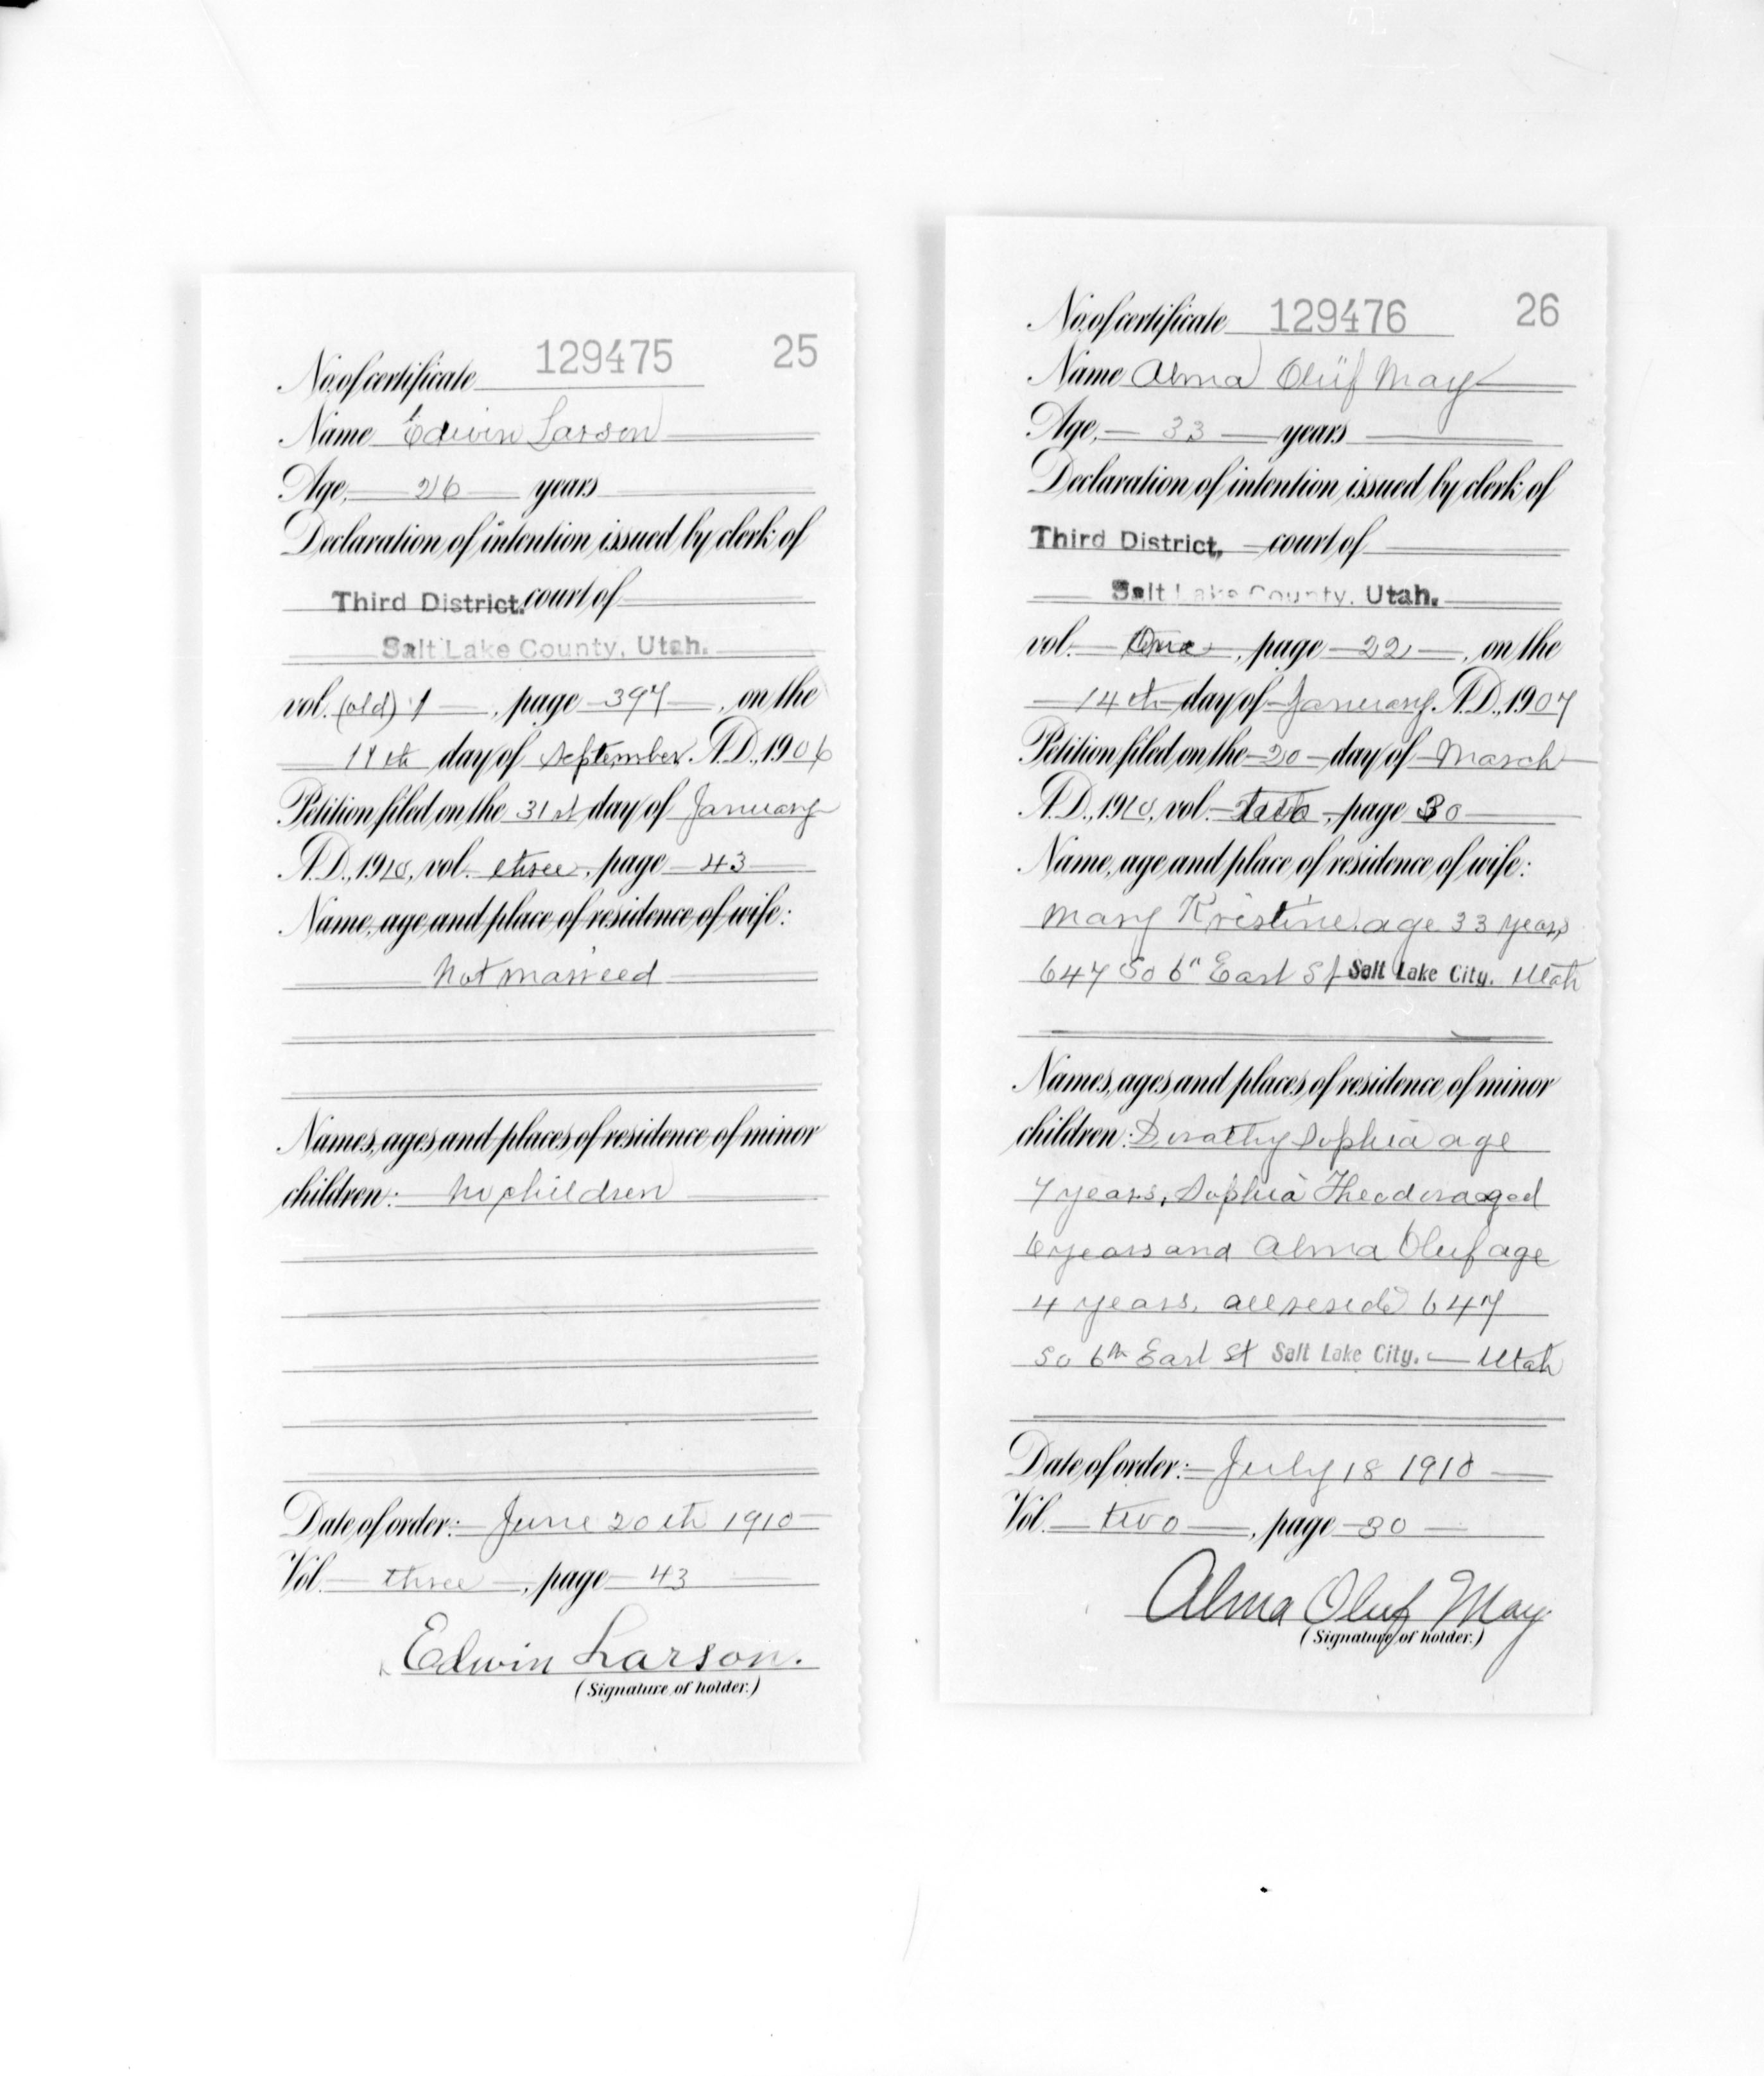 129475 25
No. of certificate
Name Edwin Larson
Age, 26 years
Declaration of intention issued by clerk of
Third District. court of
Salt Lake County, Utah.
vol. (old) 1, page 397, on the
day of September A.D., 1906
Petition filed on the 31st day of January
A.D., 1910, vol. three, page 43
Name, age and place of residence of wife:
Not married
Names, ages and places of residence of minor
children: No children
Date of order: June 20th 1910
Vol. three, page 43
Edwin Larson.
(Signature of holder.)
No. of certificate 129476 26
Name Alma Oluf May
Age, 33 years
Declaration of intention issued by clerk of
Third District, court of
Salt Lake County, Utah.
vol. One, page 22, on the
14th day of January A.D., 1907
Petition filed on the 20 day of March
A.D., 1910, vol. two, page 30
Name, age and place of residence of wife:
Mary Kristine age 33 years
647 So 6th East St Salt Lake City. Utah
Names, ages and places of residence of minor
children: Dorothy Sophia age
7 years, Sophia Theodora aged
6 years and Alma Oluf age
4 years, all reside 647
So 6th East St Salt Lake City. Utah
Date of order: July 18 1910
Vol. two, page 30
Alma Oluf May.
(Signature of holder.)